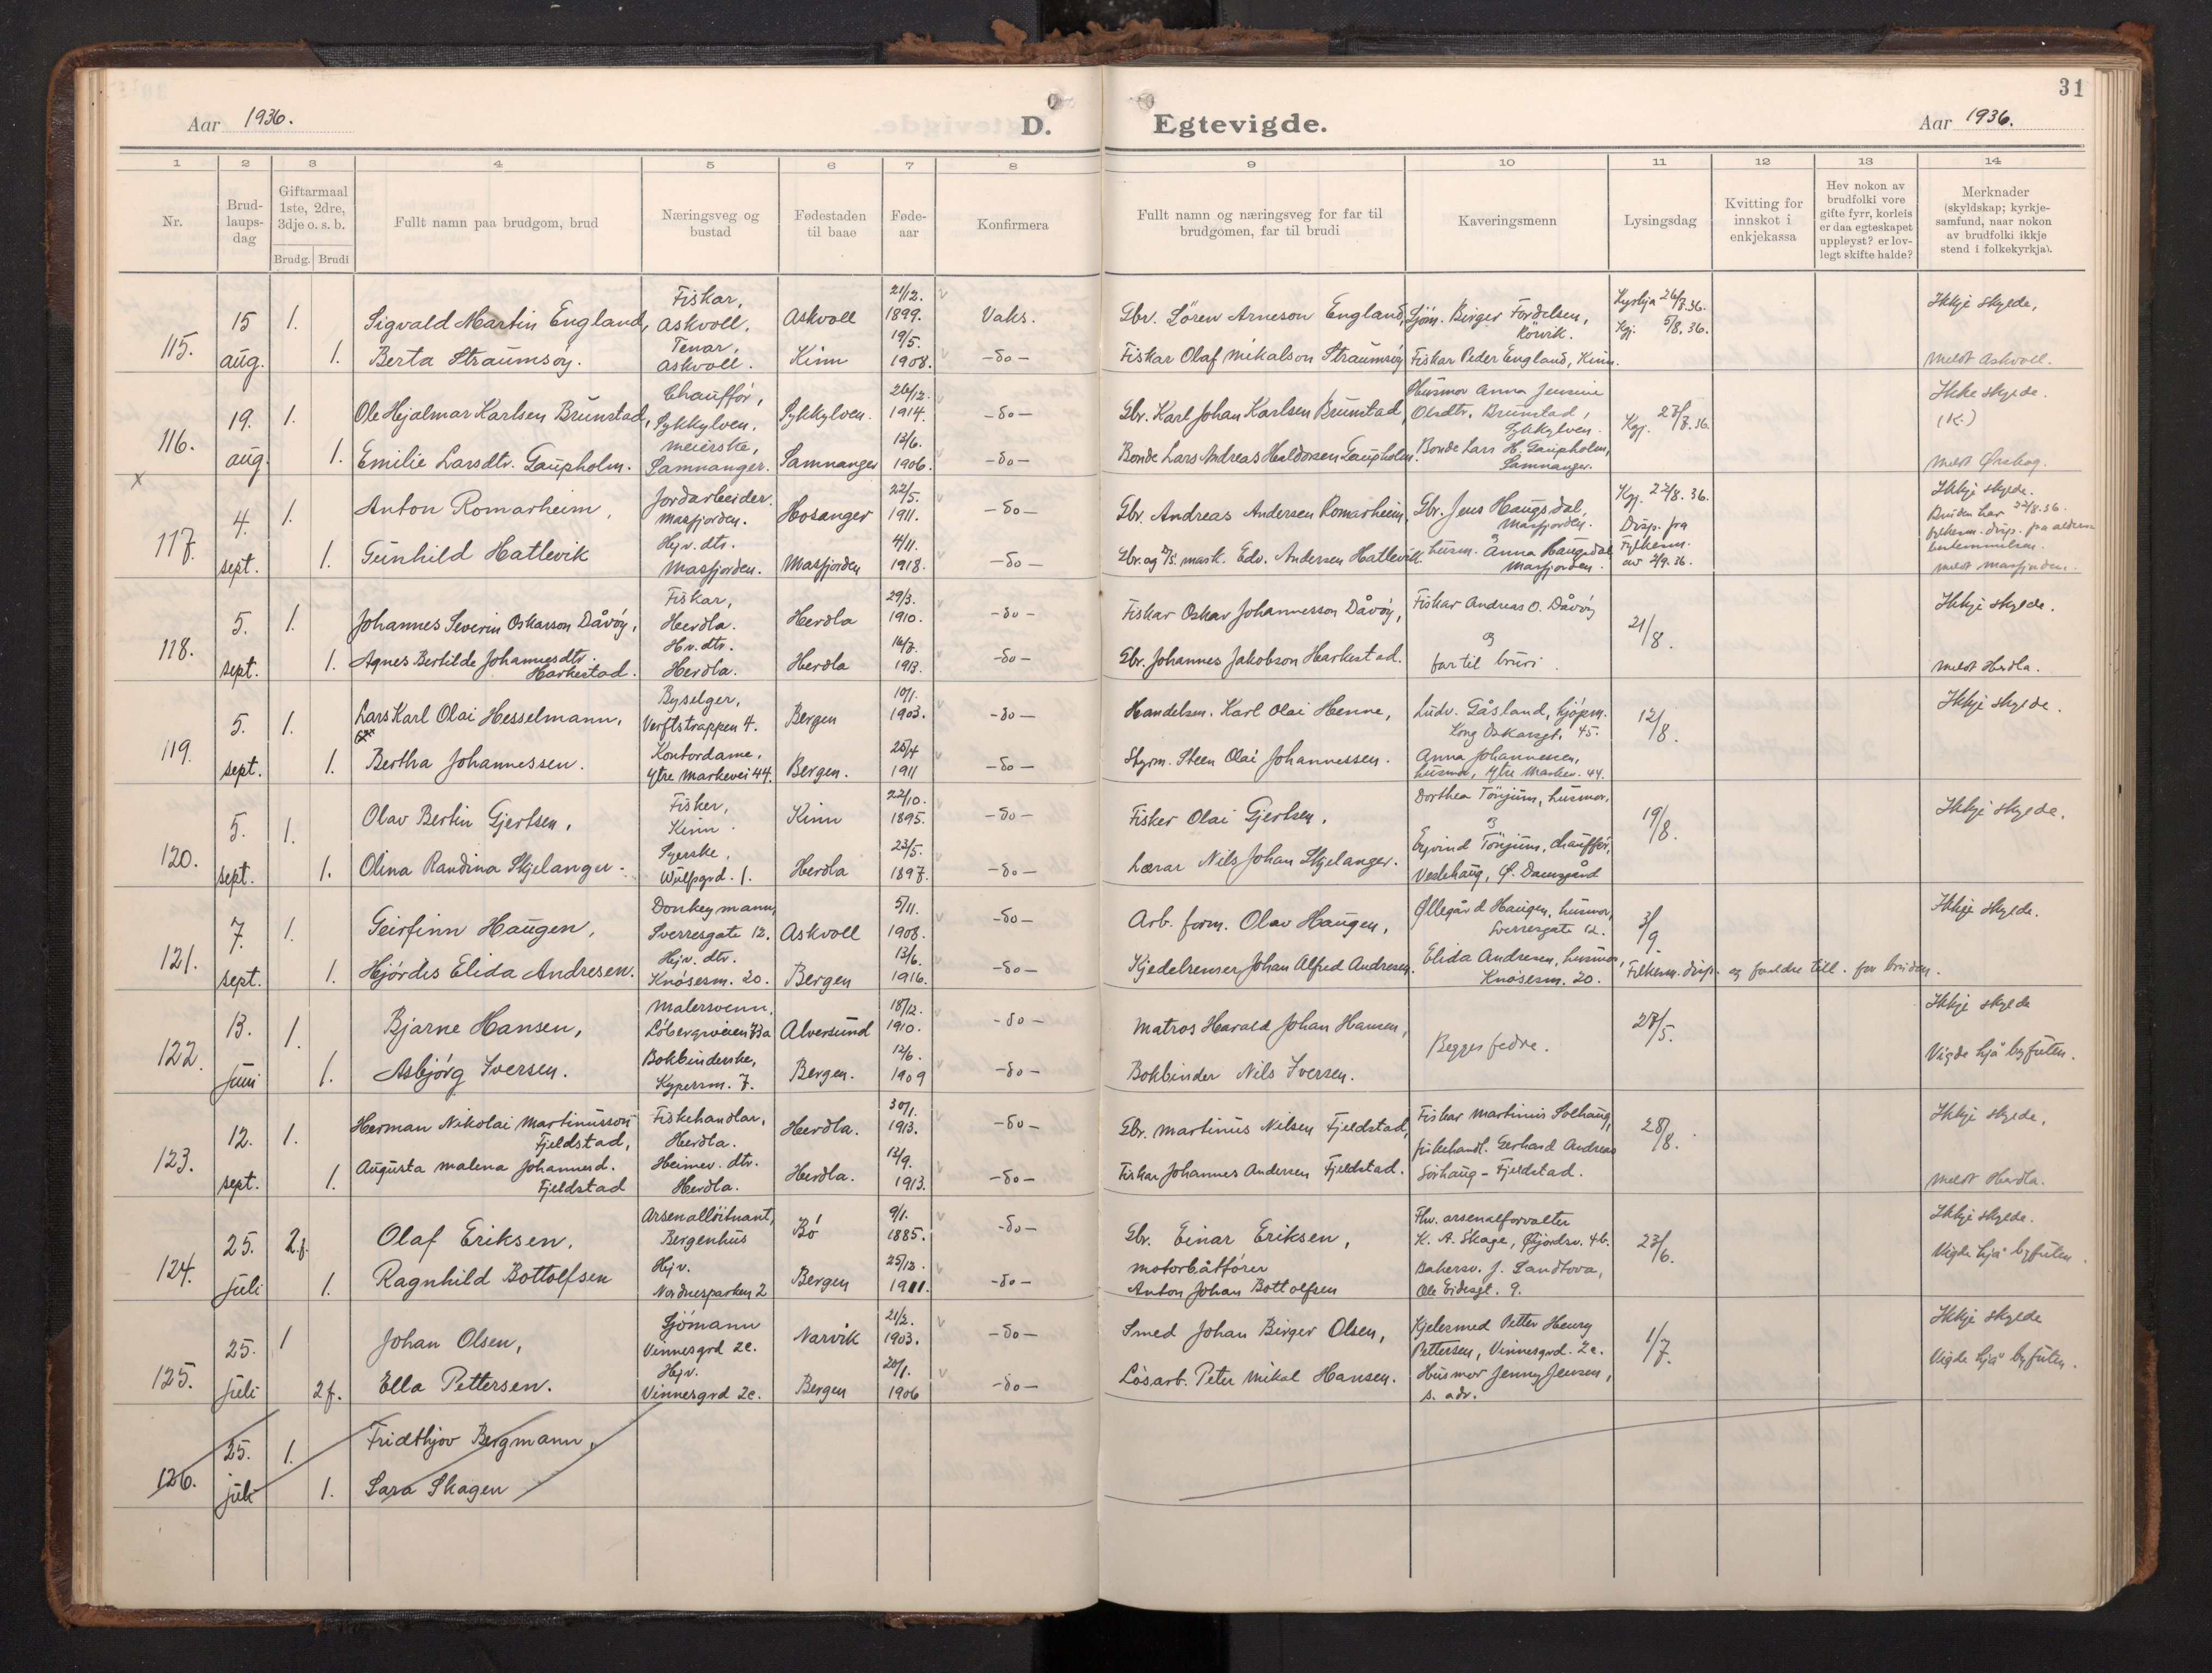 Aar 1936.
D.
Egtevigde.
Aar 1936.
31
1 2 3 4 5 6 7 8 9 10 11 12 13 14
Nr.
Brud-
laups-
dag
Giftarmaal
1ste, 2dre,
3dje o. s. b.
Brudg. Brudi
Fullt namn paa brudgom, brud
Næringsveg og
bustad
Fødestaden
til baae
Føde-
aar
Konfirmera
Fullt namn og næringsveg for far til
brudgomen, far til brudi
Kaveringsmenn
Lysingsdag
Kvitting for
innskot i
enkjekassa
Hev nokon av
brudfolki vore
gifte fyrr, korleis
er daa egteskapet
uppløyst? er lov-
legt skifte halde?
Merknader
(skyldskap; kyrkje-
samfund, naar nokon
av brudfolki ikkje
stend i folkekyrkja).
115.
15 aug.
1. Sigvald Martin England, Fiskar, Askvoll. Askvoll 21/12. 1899. Vaks.
Gbr. Sören Arneson England, Sjöm. Birger Fordelsen, Rörvik.
Kyrkja 26/7.36. Kgj. 5/8.36.
Ikkje skylde,
1. Berta Straumsöy. Tenar, Askvoll. Kinn 19/5. 1908. -do-
Fiskar Olaf Mikalson Straumsöy Fiskar Peder England, Kinn.
Meldt Askvoll.
116.
19. aug.
1. Ole Hjalmar Karlsen Brunstad, Chaufför, Sykkylven. Sykkylven. 26/12. 1914. -do-
Gbr. Karl Johan Karlsen Brunstad, Husmor Anna Jensine Olsdtr. Brunstad, Sykkylven.
Kgj. 27/7.36.
Ikke skylde.
(K.)
1. Emilie Larsdtr. Gaupholm. Meierske, Samnanger. Samnanger 13/6. 1906. -do-
Bonde Lars Andreas Haldorsen Gaupholm. Bonde Lars H. Gaupholm, Samnanger.
Meldt Ørskog.
x
117.
4. sept.
1. Anton Romarheim, Jordarbeider. Masfjorden. Hosanger 22/5. 1911. -do-
Gbr. Andreas Andersen Romarheim, Gbr. Jens Haugsdal, Masfjorden.
Kgj. 22/8.36.
Disp. fra Fylkesm. av 2/9.36.
Ikkje skylde.
Bruden har 22/8.36.
fylkesm. disp. fra alders-
bestemmelsen.
Meldt Masfjorden.
1. Gunhild Hatlevik Hjv. dtr. Masfjorden. Masfjorden 4/11. 1918. -do-
Gbr. og D/S. mask. Edv. Andersen Hatlevik. og husm. Anna Haugsdal Masfjorden.
118.
5. sept.
1. Johannes Severin Oskarson Dåvöy, Fiskar, Herdla. Herdla 29/3. 1910. -do-
Fiskar Oskar Johannesson Dåvöy, Fiskar Andreas O. Dåvöy
21/8.
Ikkje skylde.
1. Agnes Bertilde Johannesdtr. Harkestad. Hv. dtr. Herdla. Herdla 16/7. 1913. -do-
Gbr. Johannes Jakobson Harkestad. og far til brudi.
Meldt Herdla.
119.
5. sept.
1. Lars Karl Olai Hesselmann, Byselger, Verftstrappen 4. Bergen 10/1. 1903. -do-
Handelsm. Karl Olai Henne, Ludv. Gåsland, kjöpm. Kong Oskarsgt. 45.
12/8.
Ikkje skylde.
1. Bertha Johannessen. Kontordame, Ytre Markevei 44. Bergen. 25/4 1911 -do-
Styrm. Steen Olai Johannessen. Anna Johannesen, husmor, Ytre Markev. 44.
120.
5. sept.
1. Olav Bertin Gjertsen, Fisker, Kinn. Kinn 22/10. 1895. -do-
Fisker Olai Gjertsen, Dorthea Tönjum, husmor,
19/8.
Ikkje skylde.
1. Olina Randina Skjelanger. Syerske, Wulfsgrd. 1. Herdla 23/5. 1897. -do-
Lærar Nils Johan Skjelanger. og Eyvind Tönjum, chaufför, Veslehaug, Ø. Damsgård
121.
7. sept.
1. Geirfinn Haugen, Donkeymann, Sverresgate 12. Askvoll 5/11. 1908. -do-
Arb. form. Olav Haugen, Øllegård Haugen, husmor, Sverresgate 12.
3/9.
Ikkje skylde.
1. Hjördis Elida Andresen. Hjv. dtr. Knösesm. 20. Bergen 13/6. 1916. -do-
Kjedelrenser Johan Alfred Andresen. Elida Andresen, husmor, Knösesm. 20.
Filkesm. disp. og foreldre till. for bruden.
122.
13. juni
1. Bjarne Hansen, Malersvenn, Löbergsveien 73a Alversund 18/12. 1910. -do-
Matros Harald Johan Hansen, Begges fedre.
28/5.
Ikkje skylde
1. Asbjörg Iversen. Bokbinderske, Kypersm. 7. Bergen. 12/6. 1909 -do-
Bokbinder Nils Iversen.
Vigde hjå byfuten.
123.
12. sept.
1. Herman Nikolai Martinusson Fjeldstad, Fiskehandlar, Herdla. Herdla. 30/1. 1913. -do-
Gbr. Martinus Nilsen Fjeldstad, Fiskar Martinus Solhaug,
28/8.
Ikkje skylde.
1. Augusta Malena Johannesd. Fjeldstad Heimev. dtr. Herdla. Herdla. 12/9. 1913. -do-
Fiskar Johannes Andersen Fjeldstad. fiskehandl. Gerhard Andreas Sörhaug - Fjeldstad.
Meldt Herdla.
124.
25. juli
2.f. Olaf Eriksen, Arsenallöitnant, Bergenhus Bö 9/1. 1885. -do-
Gbr. Einar Eriksen, Fhv. arsenalforvalter K. A. Skage, Fjordsv. 46.
23/6.
Ikkje skylde.
1. Ragnhild Bottolfsen Hjv. Nordnesparken 2 Bergen 25/12. 1911. -do-
Motorbåtförer Anton Johan Bottolfsen Bakersv. J. Sandtova, Ole Eidesgt. 9.
Vigde hjå byfuten.
125.
25. juli
1 Johan Olsen, Sjömann Vinnesgrd 2c. Narvik 21/2. 1903. -do-
Smed Johan Birger Olsen, Kjelesmed Petter Henry Pettersen, Vinnesgrd. 2c.
1/7.
Ikkje skylde
2f. Ella Pettersen. Hjv. Vinnesgrd 2c. Bergen 20/1. 1906 -do-
Lösarb. Peter Mikal Hansen. Husmor Jenny Jensen, s. adr.
Vigde hjå byfuten.
126.
25. juli
1. Fridthjov Bergmann,
1. Sara Skagen